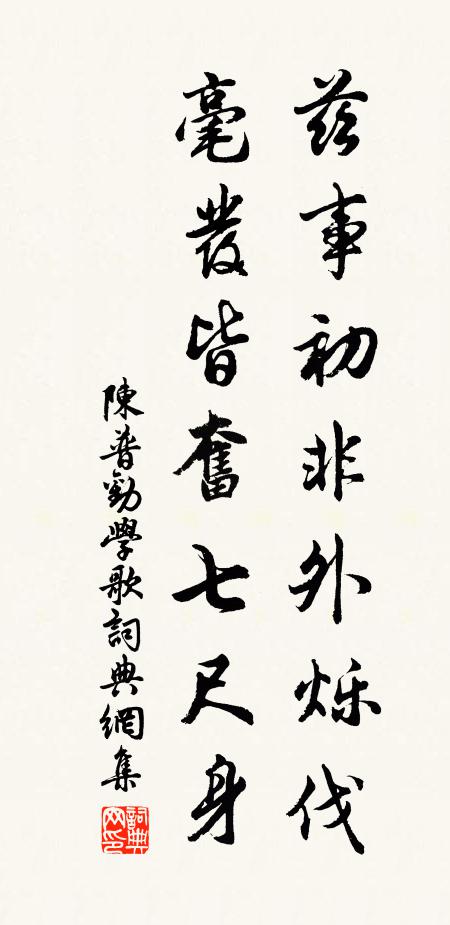 兹事初非外烁伐
毫發皆奮七尺身
陳普勸學歌詞典網集
詞典网印